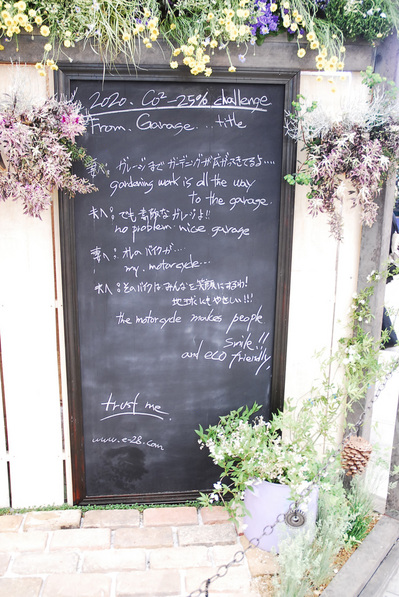 2020. Co² -25% challenge
From. Garage... title
妻へ: ガレージまでガーデニングが広がってきてるよ....
gardening work is all the way
to the garage.
夫へ: でも素敵なガレージよ!!
no problem. nice garage
妻へ: オレのバイクが....
my. motorcycle...
夫へ: そのバイクはみんなを笑顔にするわ!
地球にもやさしい!!!
the motorcycle makes people
smile!!
and eco friendly,
trust me.
www.e-28.com